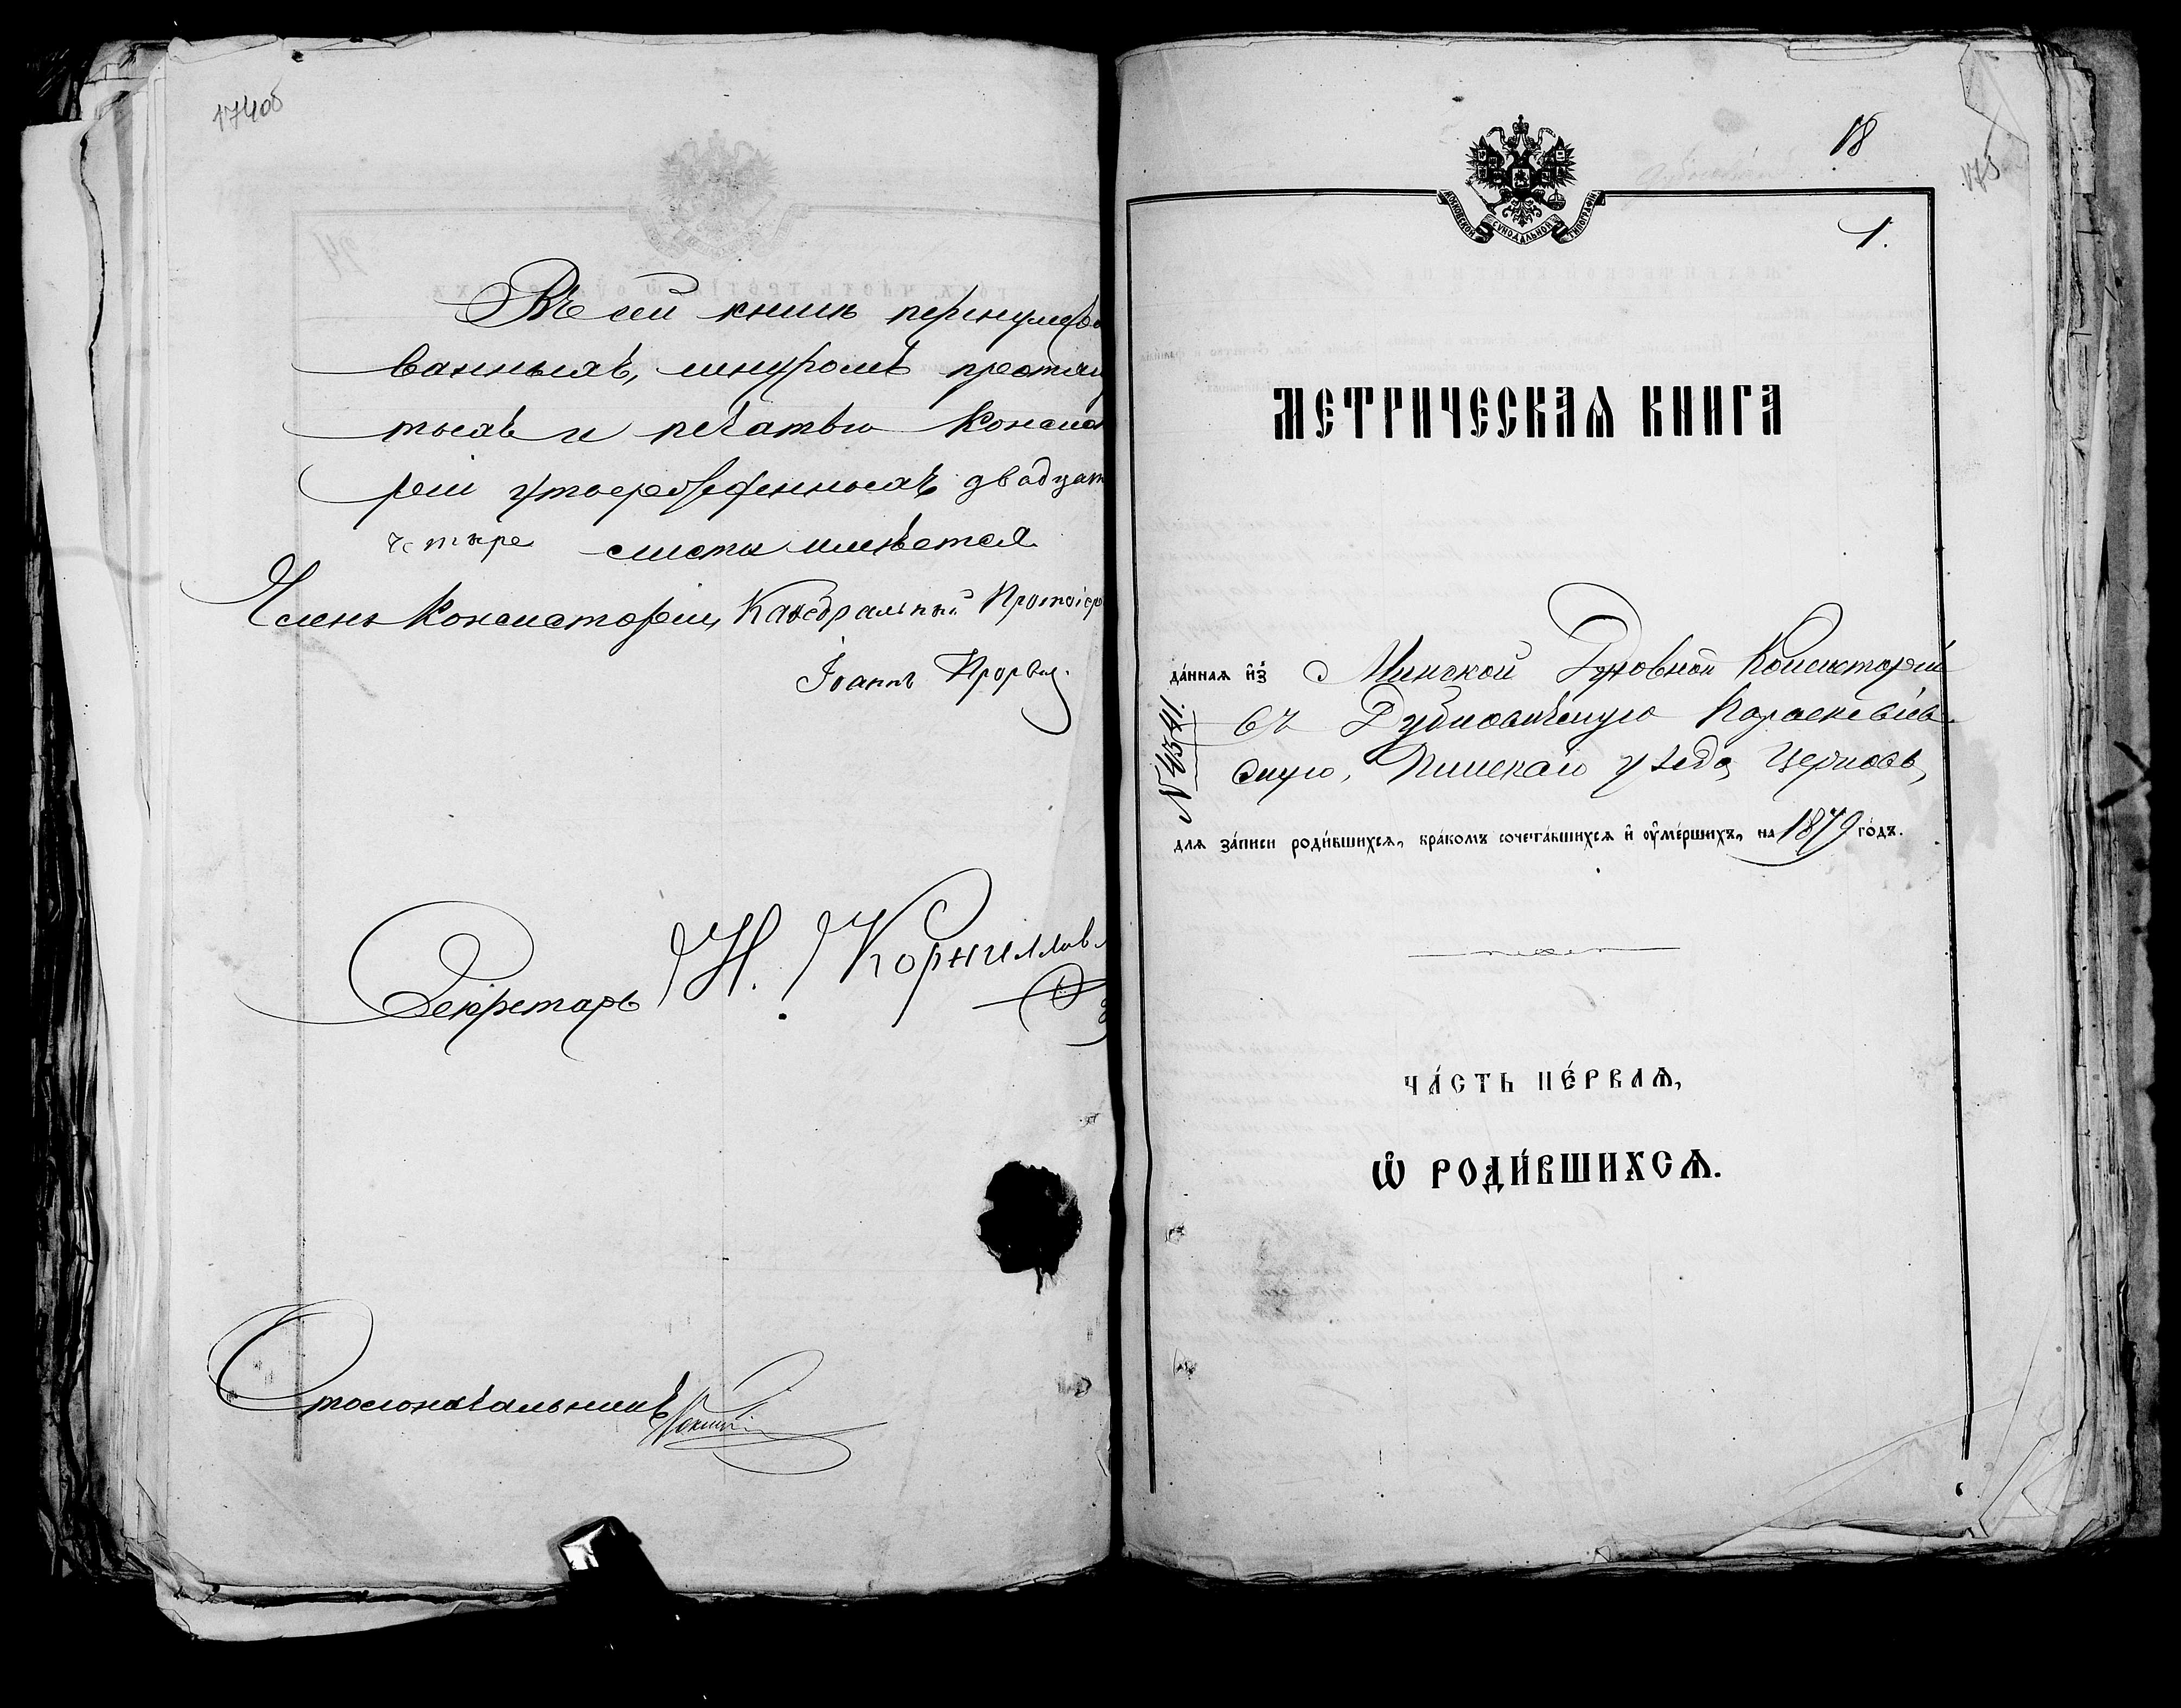 174об
Въ сей книгѣ перенумеро
ванныхъ, шнуромъ протян
тыхъ и печатью Консисто
ріи утвержденныхъ двадцат
четыре листа имѣется
Членъ Консисторіи, Каѳедральный Протоіер
Іоаннъ
Секретарь Н. Корниллов
Столоначальникъ
18
175
МОСКОВСКОЙ СѴНОДАЛЬНОЙ ТИПОГРАФІИ
1.
МЕТРИЧЕСКАѦ КНИГА
да́ннаѧ и҆з̾ Минской Духовной Консисторіи
въ Дубновичскую Параскевіев-
скую, Пинскаго уѣзда, Церковь,
для за́писи роди́вшихсѧ, бра́комъ сочета́вшихсѧ и҆ ᲂу҆ме́ршихъ, на 1879 го́дъ.
№ 4541.
ЧА́СТЬ ПЕ́РВАѦ,
Ѡ҆ РОДИ́ВШИХСѦ.